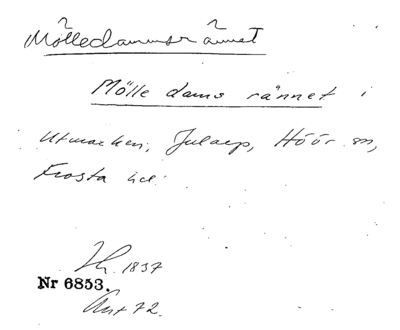 Mölledammsrännet
Mölle dams rännet i
Utmarken, Jularp, Höör sn,
Frosta hd.
1837
Nr 6853.
Ant 72.